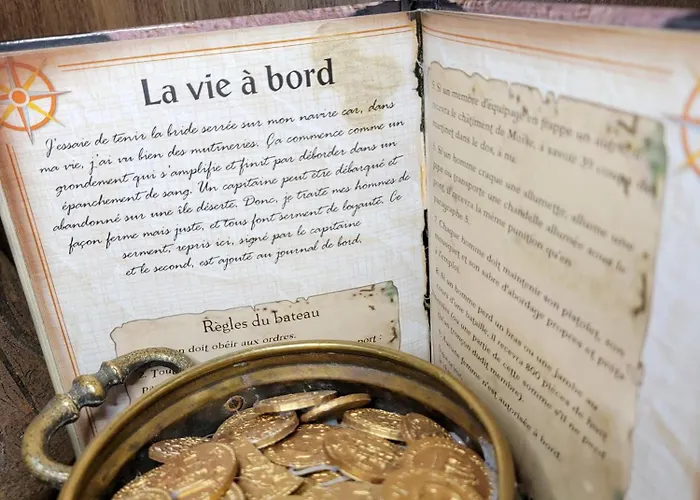 La vie à bord
J'essaie de tenir la bride serrée sur mon navire car, dans
ma vie, j'ai vu bien des mutineries. Ça commence comme un
grondement qui s'amplifie et finit par déborder dans un
épanchement de sang. Un capitaine peut être débarqué et
abandonné sur une île déserte. Donc, je traite mes hommes de
façon ferme mais juste, et tous font serment de loyauté. Ce
serment, repris ici, signé par le capitaine
et le second, est ajouté au journal de bord.
Règles du bateau
doit obéir aux ordres.
2. Tou port :
Pa
5. Si un membre d'équipage en frappe un
recevra le châtiment de Moïse, à savoir 39 coups de
martinet dans le dos, à nu.
6. Si un homme craque une allumette, allume une
pipe ou transporte une chandelle allumée sous le
pont, il recevra la même punition qu'en
paragraphe 5.
7. Chaque homme doit maintenir son pistolet, son
mousquet et son sabre d'abordage propres et prêts
à l'emploi.
8. Si un homme perd un bras ou une jambe au
cours d'une bataille, il recevra 800 pièces de huit
(ou une partie de cette somme s'il ne perd
qu'un morceau dudit membre).
femme n'est autorisée à bord.